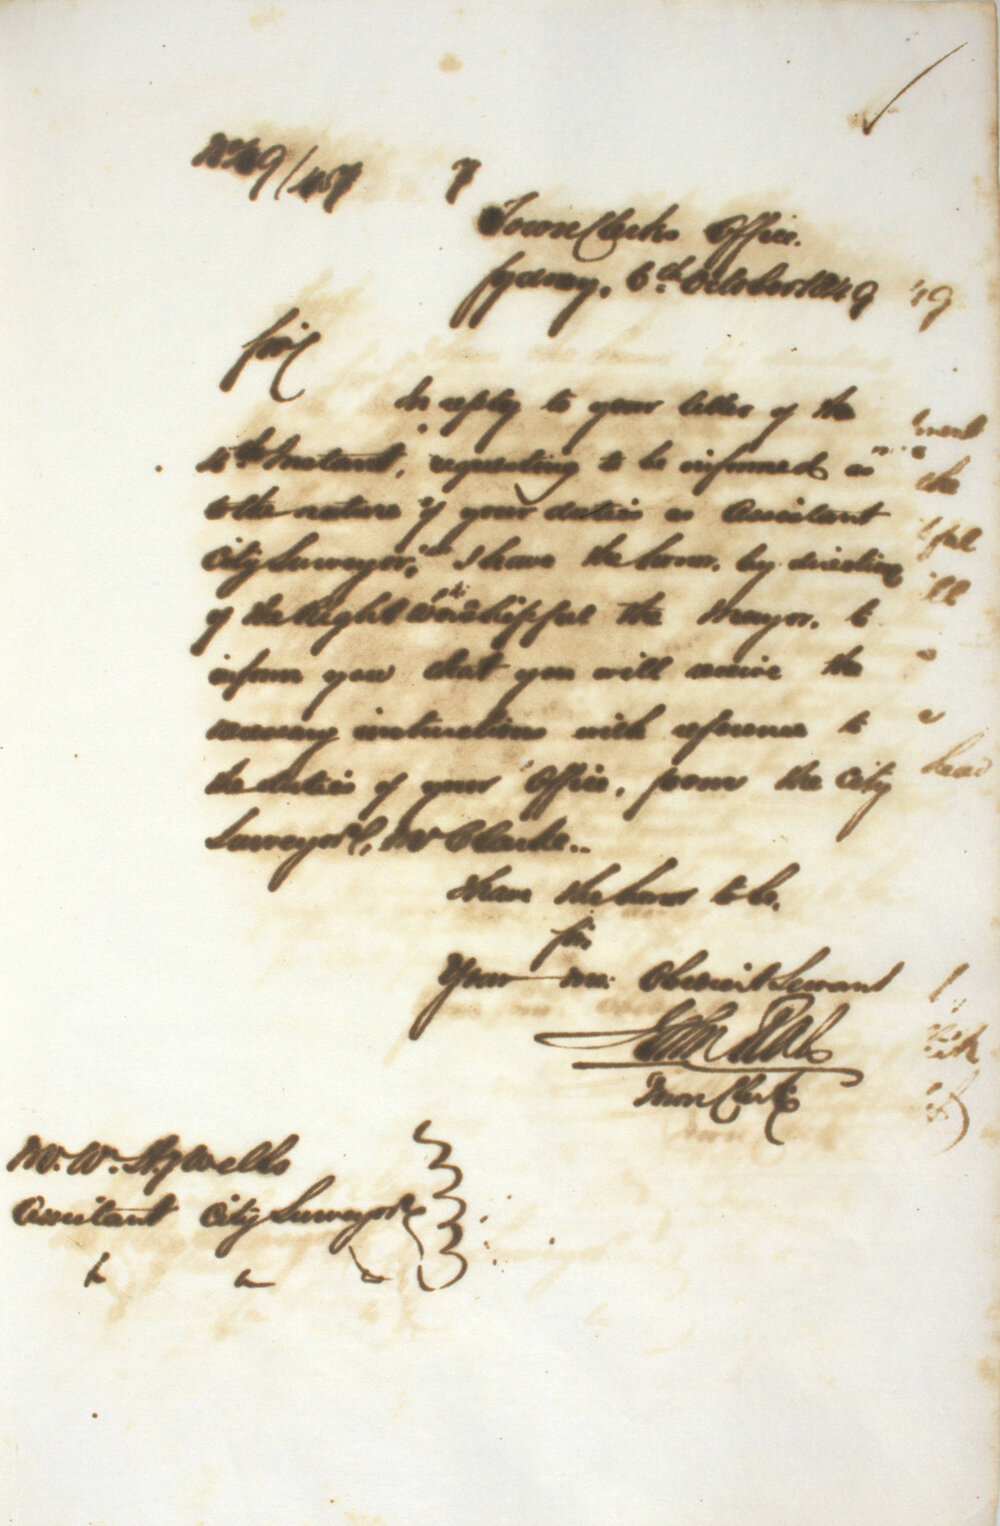 No 49/157
Town Clerks Office.
Sydney, 6th October 1849
Sir
In reply to your letter of the
4th Instant, requesting to be informed as
to the nature of your duties as Assistant
City Surveyor, I have the honor, by direction
of the Right Worshipful the Mayor, to
inform you that you will receive the
necessary instructions with reference to
the duties of your Office, from the City
Surveyor, Mr Clarke..
I have the honor to be,
Sir,
Your mo: Obedient Servant
John Rae
Town Clerk
Mr. W. H. Wells
Assistant City Surveyor